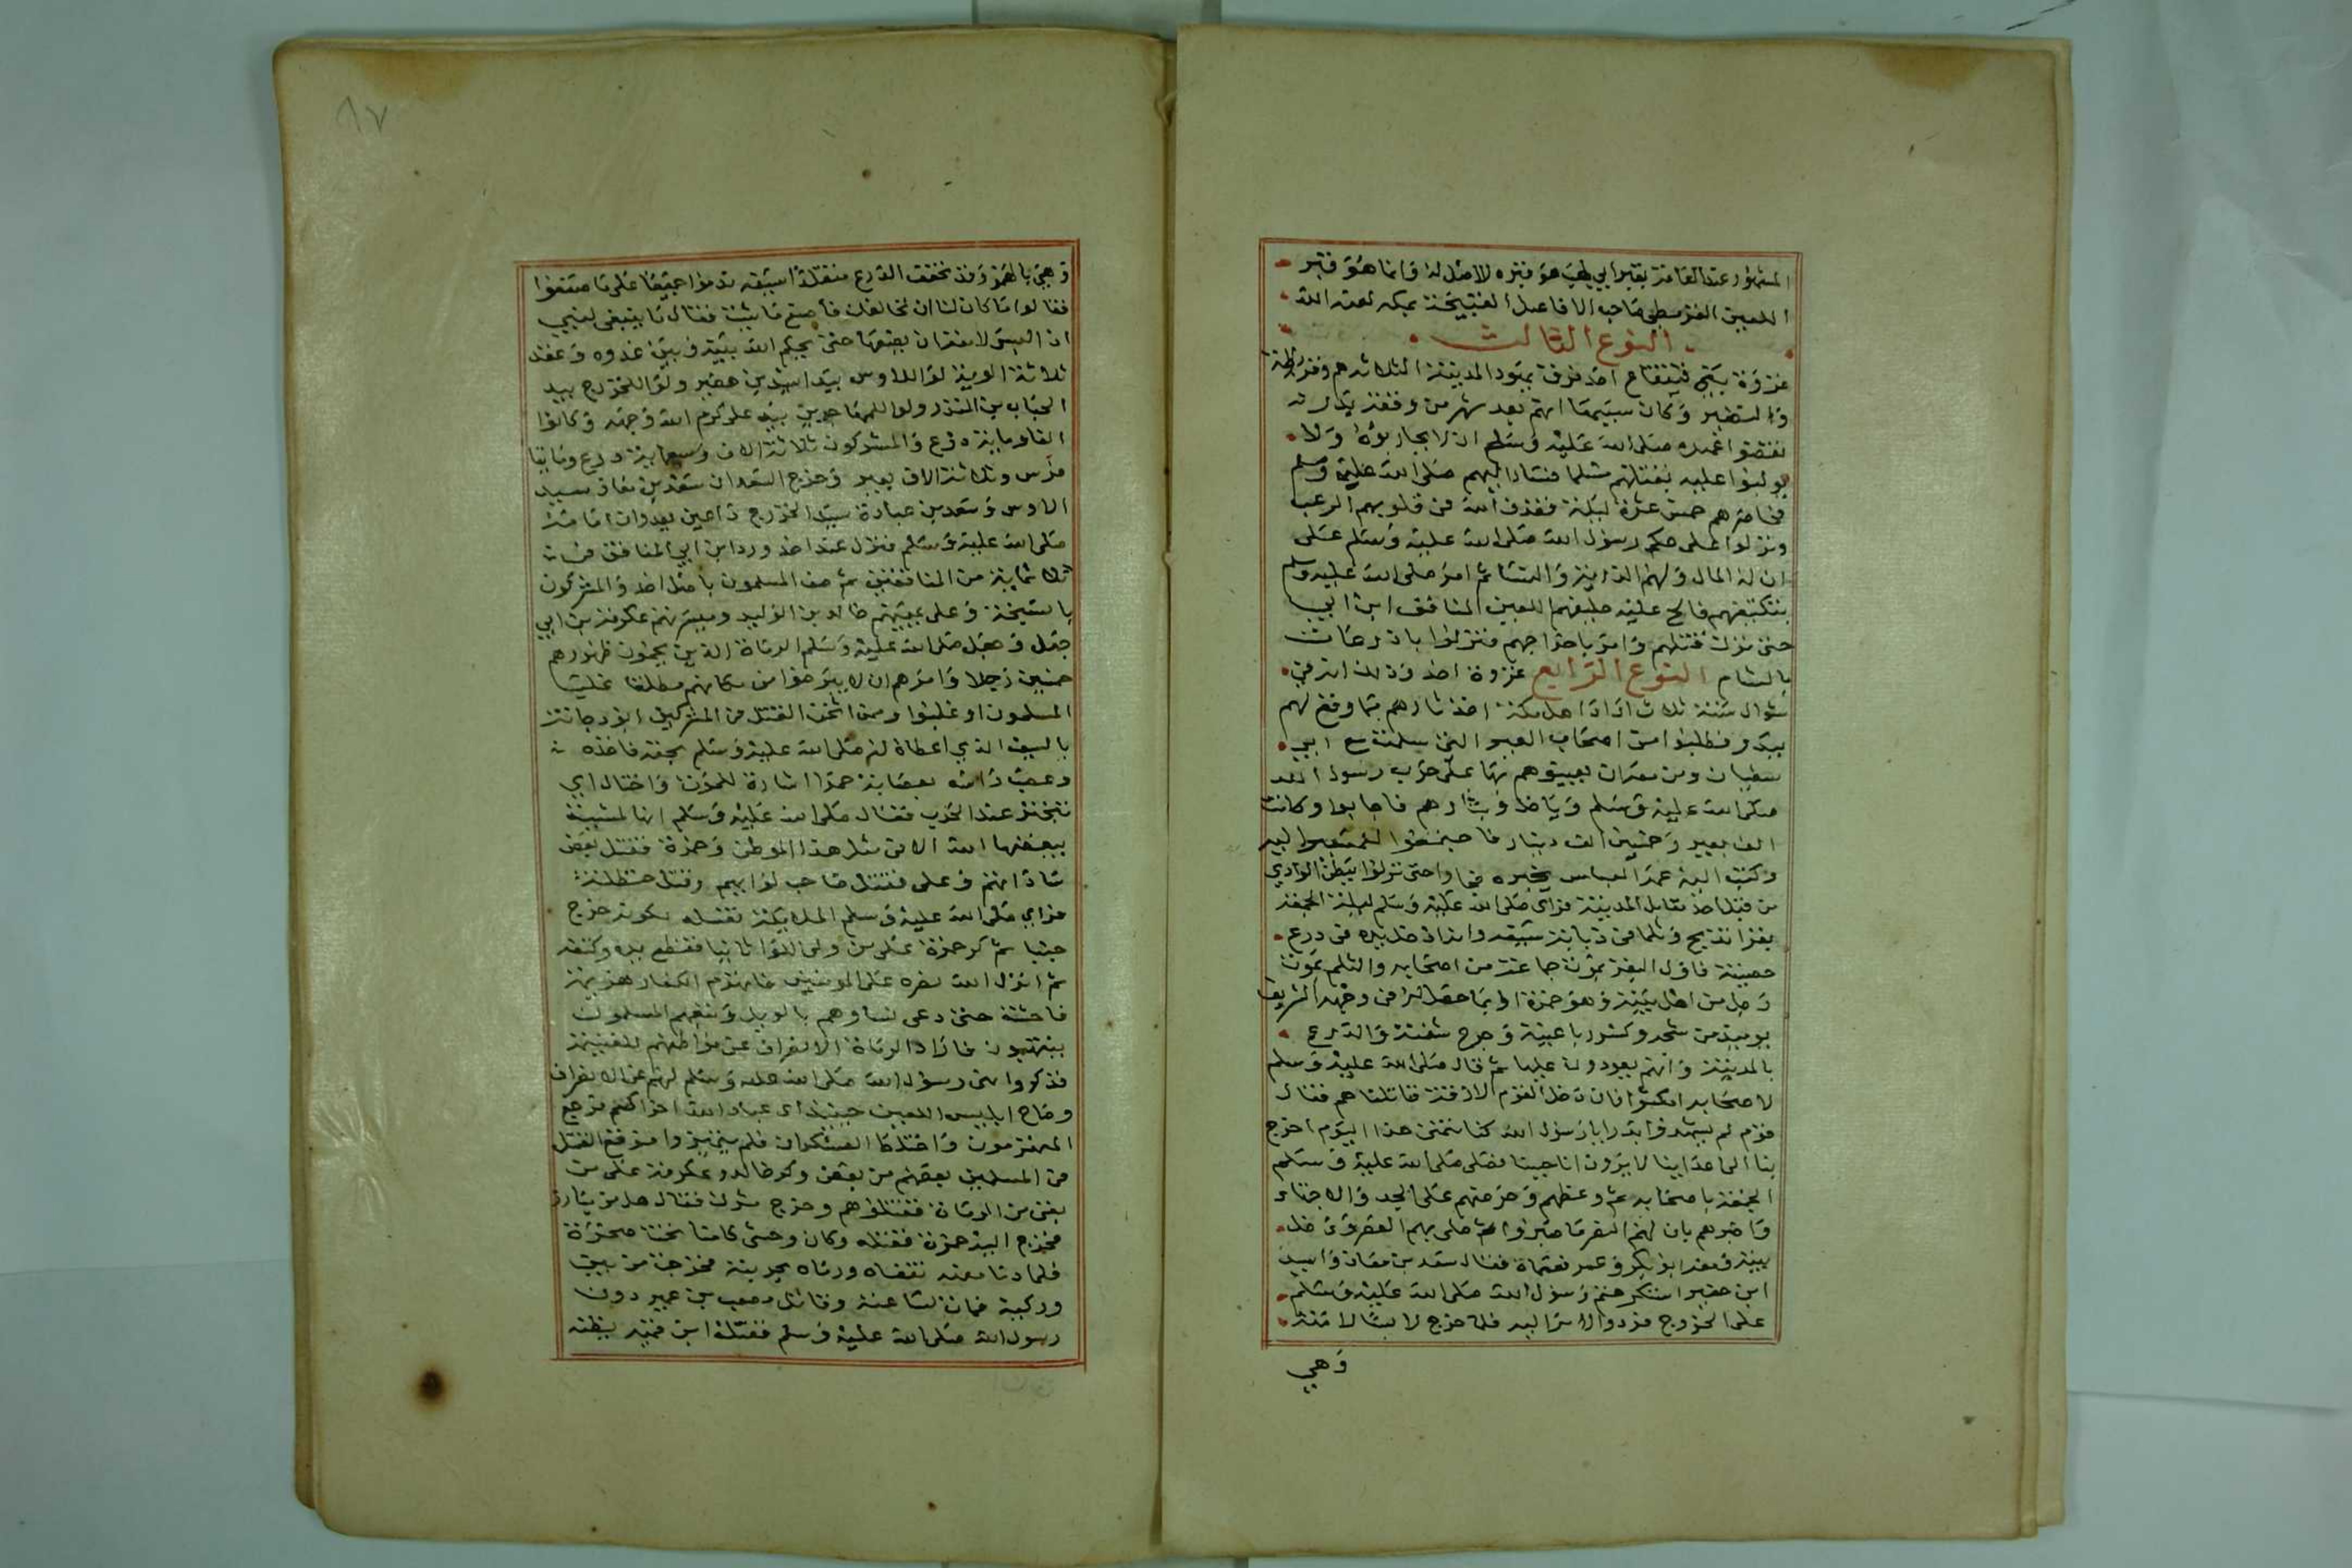 المشهور عند العامة بقبر ابي لهب هو قبره لا اصل له وانما هو قبر
اللعين القرمطي صاحب الافاعيل القبيحة بمكه لعنه الله
النوع الثالث
غزوة بني قينقاع احد فرق يهود المدينة الثلاثه هم وقريظة
والنضير وكان سببها انهم بعد شهر من وقعة بدر
نقضوا عهده صلى الله عليه وسلم ان لا يحاربوه ولا
يولبوا عليه بقتلهم مسلما فسار اليهم صلى الله عليه وسلم
فحاصرهم خمس عشرة ليلة فقذف الله في قلوبهم الرعب
ونزلوا على حكم رسول الله صلى الله عليه وسلم على
ان له المال ولهم الذرية والنسا ثم امر صلى الله عليه وسلم
بتكتيفهم فالح عليه حليفهم اللعين المنافق ابن ابي
حتى ترك قتلهم وامر باخراجهم فنزلوا باذرعات
بالشام النوع الرابع غزوة احد وذلك انه في
شوال سنة ثلاث اراد اهل مكة اخذ ثارهم بما وقع لهم
ببدر فطلبوا من اصحاب العير التي سلمت مع ابي
سفيان ومن معه ان يعينوهم بها على حرب رسول الله
صلى الله عليه وسلم وياخذوا بثارهم فاجابوا وكانت
الف بعير وخمسين الف دينار فاجتمعوا ليسيروا اليه
وكتب اليه عمه العباس يخبره فجاوا حتى نزلوا ببطن الوادي
من قبل احد مقابل المدينة فراى صلى الله عليه وسلم ليلة الجمعة
بقرا تذبح وثلما في ذبابة سيفه وانه ادخل يده في درع
حصينة فاول البقر بموت جماعة من اصحابه والثلم بموت
رجل من اهل بيته وهو حمزة او بما حصل له في وجهه الشريف
يوميذ من شجه وكسر رباعيته وجرح شفته والدرع
بالمدينة وانهم يعودون عليها ثم قال صلى الله عليه وسلم
لاصحابه امكثوا فان دخل القوم الازقة قاتلناهم فقال
قوم لم يشهدوا بدرا يا رسول الله كنا نتمنى هذا اليوم اخرج
بنا الى اعداينا لا يرون انا جبنا فصلى صلى الله عليه وسلم
الجمعة باصحابه ثم وعظهم وحرضهم على الجد والاجتهاد
واخبرهم بان لهم النصر ما صبروا ثم صلى بهم العصر ودخل
بيته ومعه ابو بكر وعمر فعمماه فقال سعد بن معاذ واسيد
ابن حضير استكرهتم رسول الله صلى الله عليه وسلم
على الخروج فردوا الامر اليه فلما خرج لابسا لامته
وهي
٨٧
وهي بالهمز وقد تخفف الدرع متقلدا سيفه ندموا جميعا على ما صنعوا
فقالوا ما كان لنا ان نخالفك فاصنع ما شئت فقال ما ينبغي لنبي
اذا لبس لامته ان يضعها حتى يحكم الله بينه وبين عدوه وعقد
ثلاثة الوية لوا للاوس بيد اسيد بن حضير ولوا للخزرج بيد
الحباب بن المنذر ولوا للمهاجرين بيد على كرم الله وجهه وكانوا
الفا وماية درع والمشركون ثلاثة الاف وسبعماية درع ومايتا
فرس وثلاثة الاف بعير وخرج السعدان سعد بن معاذ سيد
الاوس وسعد بن عبادة سيد الخزرج دارعين يعدوان امامه
صلى الله عليه وسلم فنزل عند احد ورد ابن ابي المنافق في
ثلاثماية من المنافقين ثم صف المسلمون باصل احد والمشركون
بالسبخة وعلى يمينهم خالد بن الوليد وميسرتهم عكرمة بن ابي
جهل وجعل صلى الله عليه وسلم الرماة الذين يحمون ظهورهم
خمسين رجلا وامرهم ان لا يبرحوا من مكانهم مطلقا غلبت
المسلمون او غلبوا وممن اثخن القتل في المشركين ابو دجانة
بالسيف الذي اعطاه له صلى الله عليه وسلم بحقه فاخذه
وعصب راسه بعصابة حمرا اشارة للموت واختال اي
تبختر عند الحرب فقال صلى الله عليه وسلم انها لمشية
يبغضها الله الا في مثل هذا الموطن وحمزة فقتل بعض
ساداتهم وعلى فقتل صاحب لوايهم وقتل حنظلة
فراي صلى الله عليه وسلم الملايكة تغسله لكونه خرج
جنبا ثم كر حمزة على من ولى اللوا ثانيا فقطع يده وكتفه
ثم انزل الله نصره على المومنين فانهزم الكفار هزيمة
فاحشة حتى دعى نساوهم بالويل وتبعهم المسلمون
ينتهبون فاراد الرماة الانصراف عن مواطنهم للغنيمة
فذكروا نهى رسول الله صلى الله عليه وسلم لهم عن الانصراف
وصاح ابليس اللعين حينئذ اي عباد الله اخراكم فرجع
المنهزمون واختلط العسكران فلم يتميزوا فوقع القتل
في المسلمين بعضهم من بعض وكر خالد وعكرمة على من
بقي من الرماة فقتلوهم وخرج مشرك فقال هل من مبارز
فخرج اليه حمزة فقتله وكان وحشى كامنا تحت صخرة
فلما دنا منه تلقاه ورماه بحربته فخرجت من بين
وركيه فمات لساعته وقاتل مصعب بن عمير دون
رسول الله صلى الله عليه وسلم فقتله ابن قميه يظنه